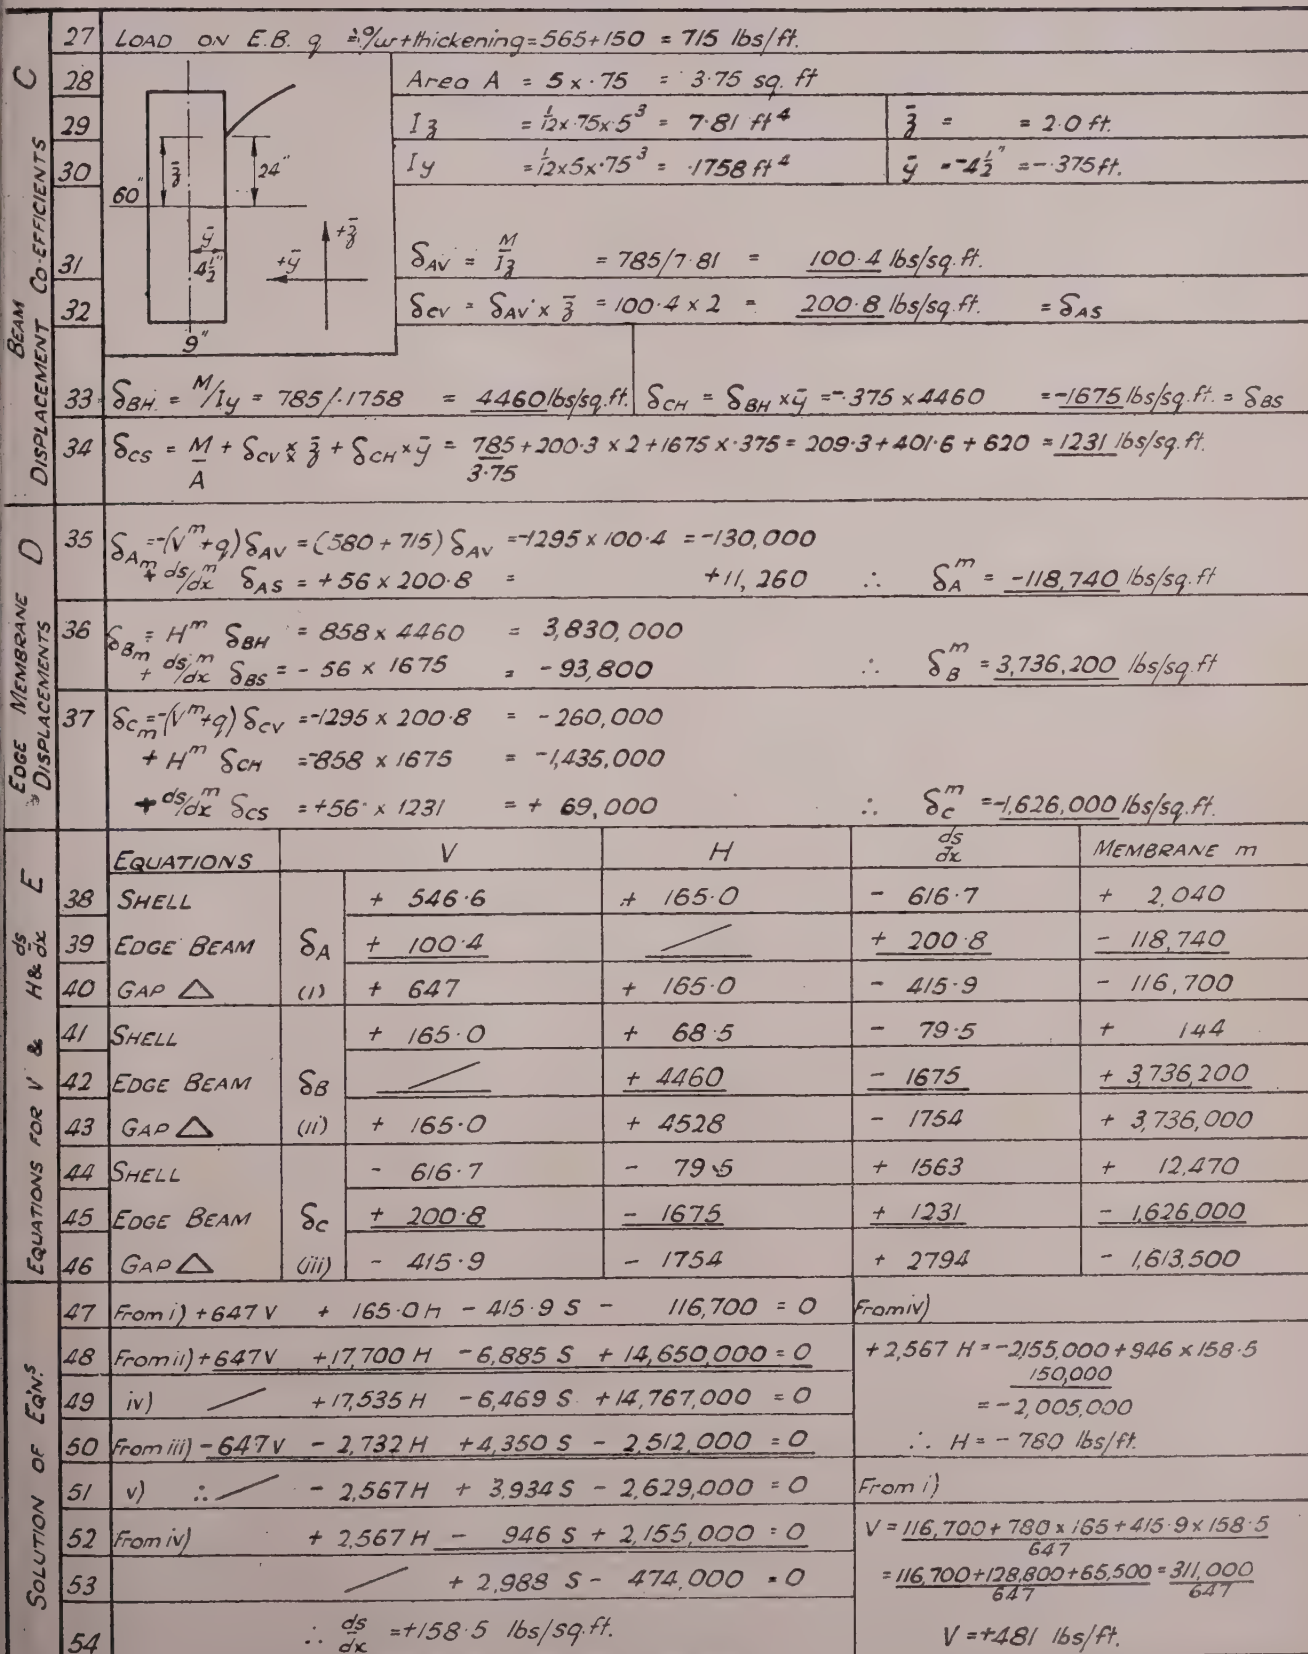 BEAM DISPLACEMENT CO-EFFICIENTS C
27 LOAD ON E.B. q = o/w + thickening = 565+150 = 715 lbs/ft.
28 Area A = 5 x .75 = 3.75 sq. ft
29 I_z = 1/12 x .75 x 5³ = 7.81 ft⁴ z̄ = = 2.0 ft.
30 Iy = 1/12 x 5 x .75³ = .1758 ft⁴ ȳ = -4½" = -.375 ft.
z̄ 24"
60"
ȳ
4½"
+z̄
+ȳ
9"
31 δAV = M/I_z = 785/7.81 = 100.4 lbs/sq.ft.
32 δCV = δAV x z̄ = 100.4 x 2 = 200.8 lbs/sq.ft. = δAS
33 δBH = M/Iy = 785/.1758 = 4460 lbs/sq.ft. δCH = δBH x ȳ = -.375 x 4460 = -1675 lbs/sq.ft. = δBS
34 δCS = M/A + δCV x z̄ + δCH x ȳ = 785/3.75 + 200.3 x 2 + 1675 x .375 = 209.3 + 401.6 + 620 = 1231 lbs/sq.ft.
EDGE MEMBRANE DISPLACEMENTS D
35 δAm = -(V^m+q) δAV = (580 + 715) δAV = -1295 x 100.4 = -130,000
+ ds/dx^m δAS = +56 x 200.8 = +11,260 ∴ δA^m = -118,740 lbs/sq.ft
36 δBm = H^m δBH = 858 x 4460 = 3,830,000
+ ds/dx^m δBS = - 56 x 1675 = - 93,800 ∴ δB^m = 3,736,200 lbs/sq.ft
37 δCm = -(V^m+q) δCV = -1295 x 200.8 = - 260,000
+ H^m δCH = -858 x 1675 = -1,435,000
+ ds/dx^m δCS = +56 x 1231 = + 69,000 ∴ δC^m = -1,626,000 lbs/sq.ft.
EQUATIONS FOR V & H & ds/dx E
EQUATIONS V H ds/dx MEMBRANE m
38 SHELL + 546.6 + 165.0 - 616.7 + 2,040
39 EDGE BEAM δA + 100.4 / + 200.8 - 118,740
40 GAP △ (i) + 647 + 165.0 - 415.9 - 116,700
41 SHELL + 165.0 + 68.5 - 79.5 + 144
42 EDGE BEAM δB / + 4460 - 1675 + 3,736,200
43 GAP △ (ii) + 165.0 + 4528 - 1754 + 3,736,000
44 SHELL - 616.7 - 79.5 + 1563 + 12,470
45 EDGE BEAM δC + 200.8 - 1675 + 1231 - 1,626,000
46 GAP △ (iii) - 415.9 - 1754 + 2794 - 1,613,500
SOLUTION OF EQNS
47 From i) + 647 V + 165.0 H - 415.9 S - 116,700 = 0
48 From ii) + 647V + 17,700 H - 6,885 S + 14,650,000 = 0
49 iv) / + 17,535 H - 6,469 S + 14,767,000 = 0
50 From iii) - 647V - 2,732 H + 4,350 S - 2,512,000 = 0
51 v) ∴ / - 2,567 H + 3,934 S - 2,629,000 = 0
52 From iv) + 2,567 H - 946 S + 2,155,000 = 0
53 / + 2,988 S - 474,000 = 0
54 ∴ ds/dx = +158.5 lbs/sq.ft.
From iv)
+ 2,567 H = -2,155,000 + 946 x 158.5
150,000
= - 2,005,000
∴ H = - 780 lbs/ft.
From i)
V = 116,700 + 780 x 165 + 415.9 x 158.5
647
= 116,700 + 128,800 + 65,500 = 311,000
647 647
V = +481 lbs/ft.